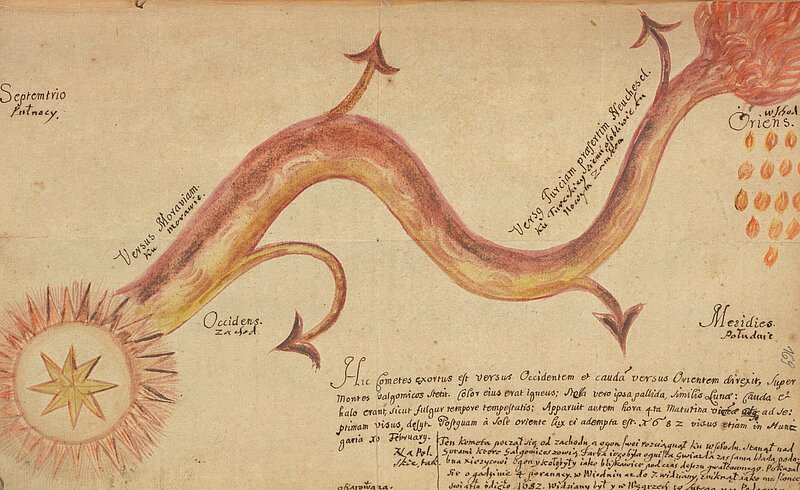 Septemtrio
Pułnocy.
Versus Moraviam.
ku morawie.
Occidens.
zachod.
Versg Turciam præsertim Neuchesel.
ku Tureckiey Ziemi osobliwie ku
Nowym Zamkom
wschod
Oriens.
Meridies.
Południe.
164
Hic Cometes exortus est versus Occidentem et caudã versus Orientem direxit, super
Montes Galgomicos stetit. Color eius erat igneus; stella vero ipsa pallida, similis Lunæ: Cauda et
halo erant, sicut fulgur tempore tempestatis; Apparuit autem hora 4ta Matutina ad Se=
ptimam visus, Postquam à Sole oriente lux ei adempta est. 1682 visus etiam in Hun
garia February.
Na Pol
skie tak.
Ten kometa począł się od zachodu, a ogon swoi rozciągnął ku wschodu. Stanął nad
Gorami ktore Galgomiczowią Farba iego była ognista Gwiazda zas sama blada podo
bna xiezycowi Ogon y koło były iako blikawice pod czas deszczu gwałtownego. Pokazał
Sie o godzinie 4 poranney, w Wiedniu aż do 7. widziany, zniknął iako mu słonce
swiatło odięło 1682. Widziany był y w Węgrzech